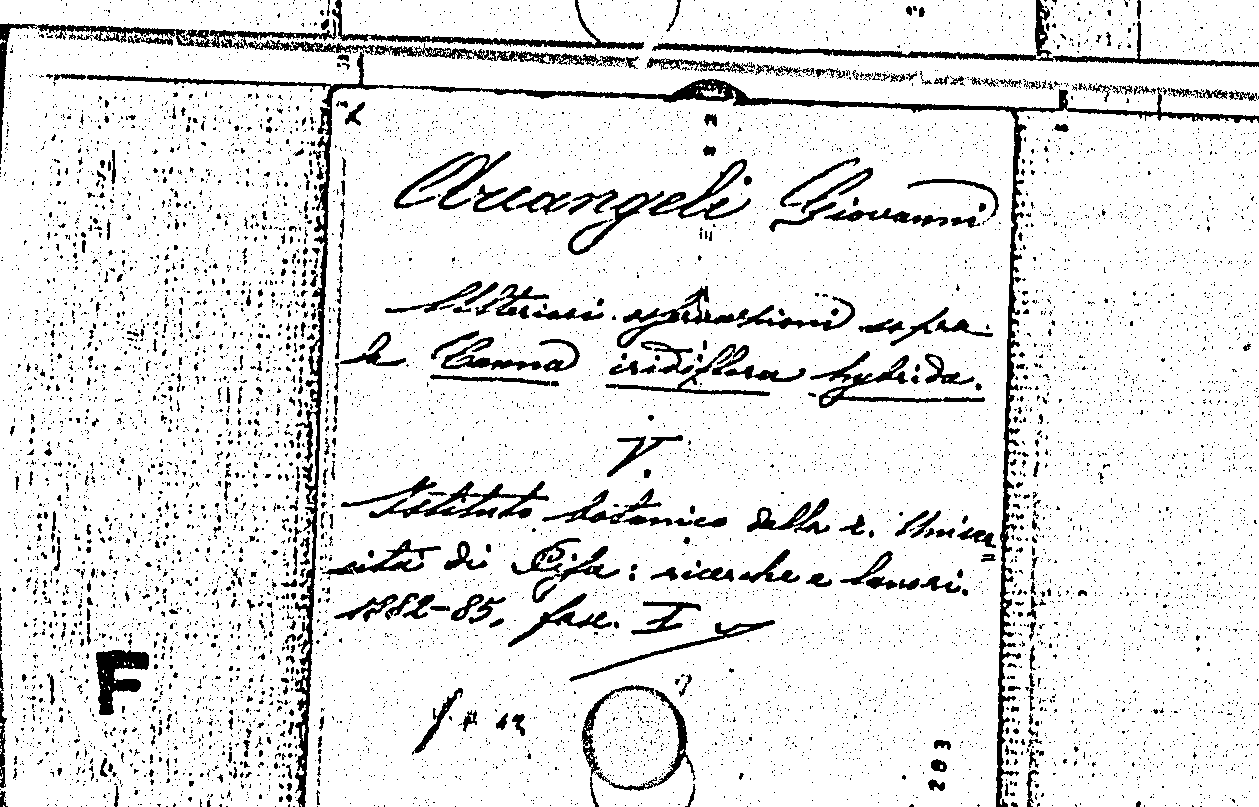 Arcangeli Giovanni
Ulteriori osservazioni sopra
la Canna iridiflora hybrida.
V.
Istituto botanico della r. Univer=
sità di Pisa: ricerche e lavori.
1882-85, fasc. I
F
203